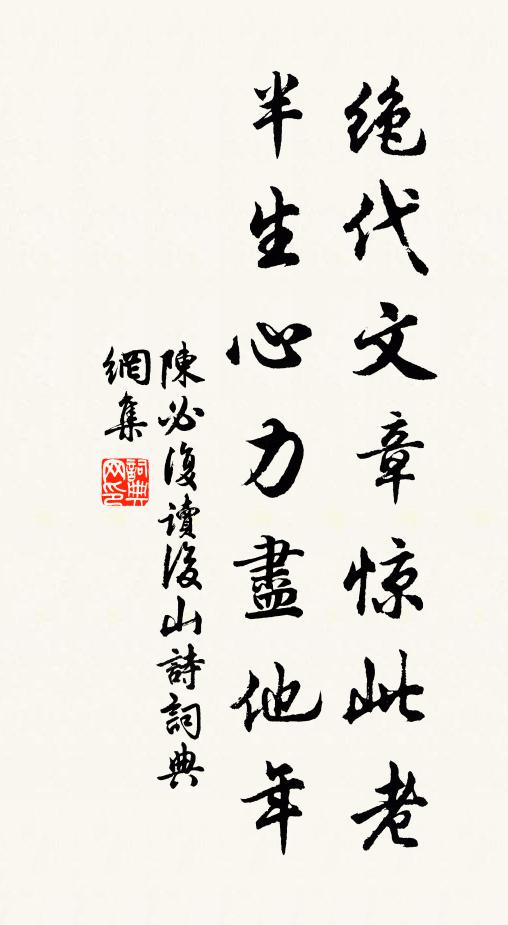 绝代文章惊此老
半生心力盡他年
陳必復讀後山詩詞典
網集
詞典
网印